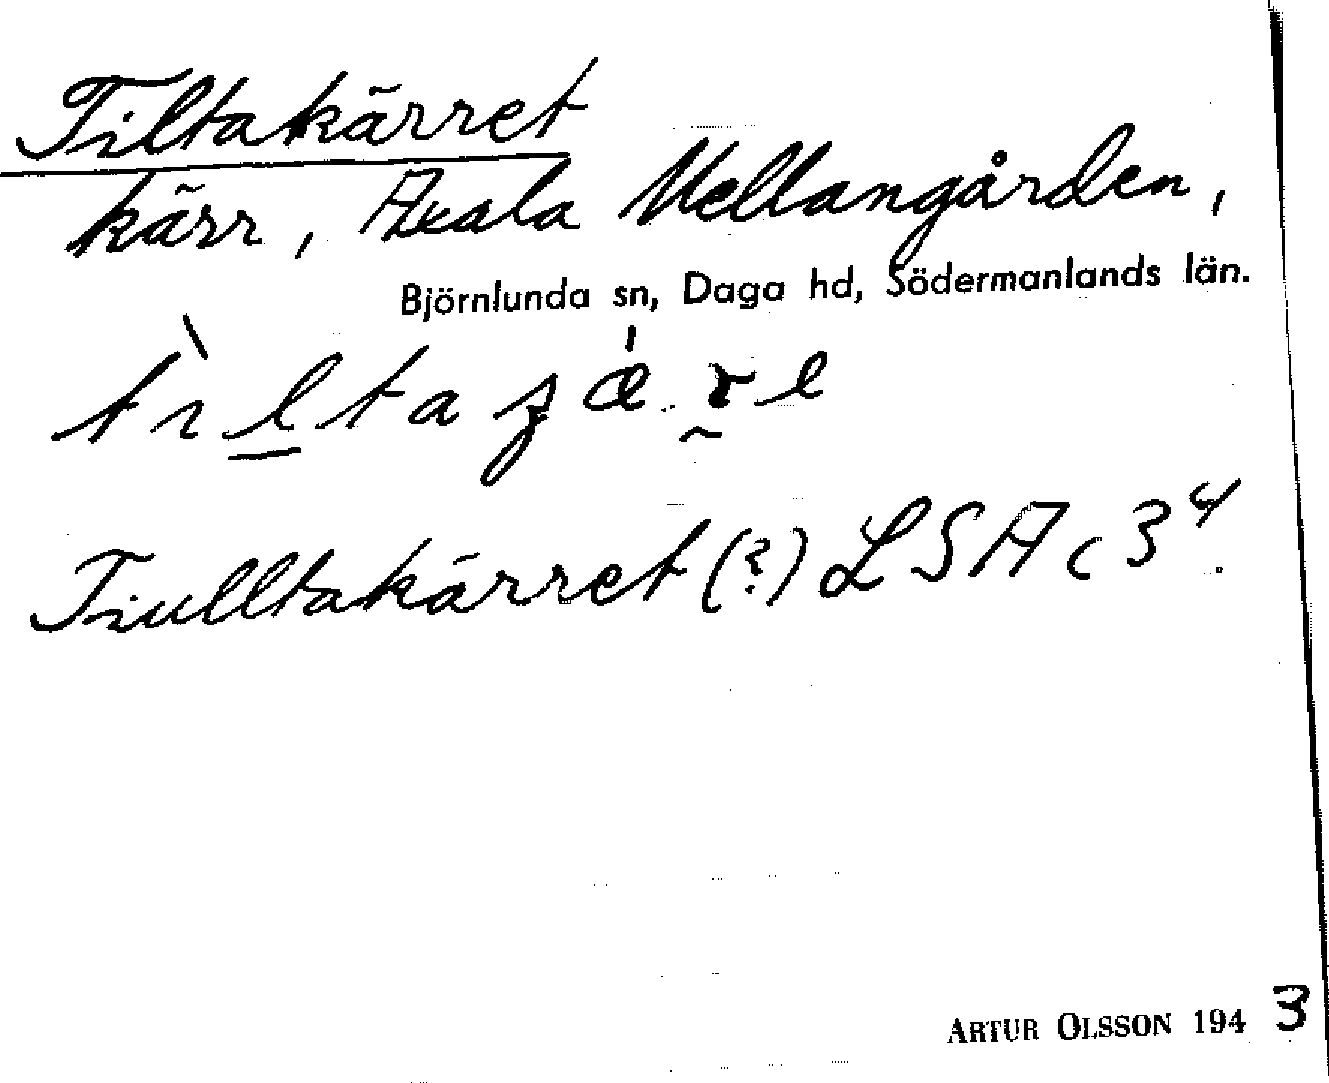 Tiltakärret
kärr, Axala Mellangården,
Björnlunda sn, Daga hd, Södermanlands län.
Tiulltakärret (?) LSA c 3⁴.
ARTUR OLSSON 1943